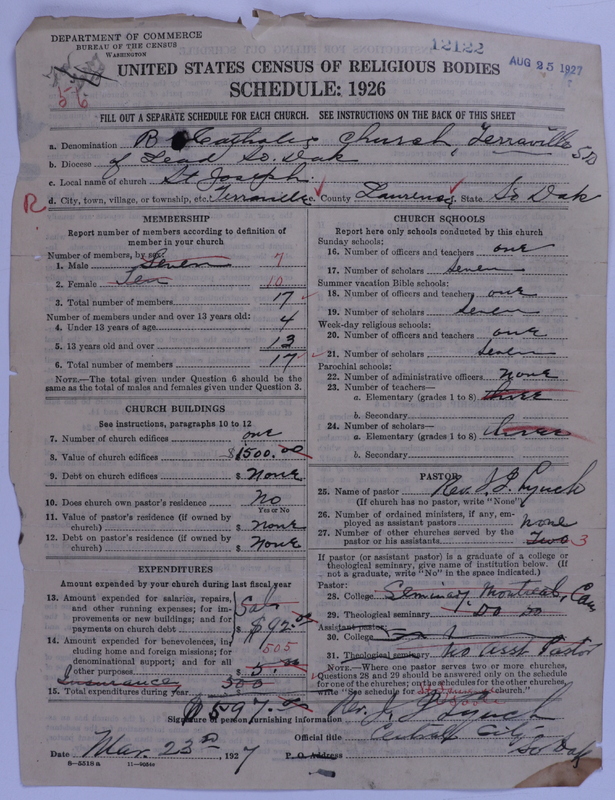 DEPARTMENT OF COMMERCE
BUREAU OF THE CENSUS
WASHINGTON
12122
AUG 25 1927
UNITED STATES CENSUS OF RELIGIOUS BODIES
SCHEDULE: 1926
FILL OUT A SEPARATE SCHEDULE FOR EACH CHURCH. SEE INSTRUCTIONS ON THE BACK OF THIS SHEET
a. Denomination R Catholic Church, Terraville So D
b. Diocese of Lead So. Dak
c. Local name of church St Joseph
R d. City, town, village, or township, etc. Terraville e. County Laurence f. State So Dak
MEMBERSHIP
Report number of members according to definition of
member in your church
Number of members, by sex:
1. Male Seven 7
2. Female Ten 10
3. Total number of members 17
Number of members under and over 13 years old:
4. Under 13 years of age 4
5. 13 years old and over 13
6. Total number of members 17
NOTE.—The total given under Question 6 should be the
same as the total of males and females given under Question 3.
CHURCH BUILDINGS
See instructions, paragraphs 10 to 12
7. Number of church edifices one
8. Value of church edifices $1500.00
9. Debt on church edifices $ None
10. Does church own pastor's residence? No
Yes or No
11. Value of pastor's residence (if owned by
church) $ None
12. Debt on pastor's residence (if owned by
church) $ None
EXPENDITURES
Amount expended by your church during last fiscal year
13. Amount expended for salaries, repairs,
and other running expenses; for im-
provements or new buildings; and for
payments on church debt $92.00
14. Amount expended for benevolences, in-
cluding home and foreign missions; for
denominational support; and for all
other purposes 505
$ 5.00
Insurance 500
15. Total expenditures during year
$597.00
CHURCH SCHOOLS
Report here only schools conducted by this church
Sunday schools:
16. Number of officers and teachers one
17. Number of scholars seven
Summer vacation Bible schools:
18. Number of officers and teachers one
19. Number of scholars seven
Week-day religious schools:
20. Number of officers and teachers one
21. Number of scholars seven
Parochial schools:
22. Number of administrative officers none
23. Number of teachers—
a. Elementary (grades 1 to 8)
b. Secondary
24. Number of scholars—
a. Elementary (grades 1 to 8)
b. Secondary
PASTOR
25. Name of pastor Rev. J. J. Lynch
(If church has no pastor, write "None")
26. Number of ordained ministers, if any, em-
ployed as assistant pastors none
27. Number of other churches served by the
pastor or his assistants Two 3
If pastor (or assistant pastor) is a graduate of a college or
theological seminary, give name of institution below. (If
not a graduate, write "No" in the space indicated.)
Pastor:
28. College Seminary Montreal, Can
29. Theological seminary Do Do
Assistant pastor:
30. College
31. Theological seminary No asst Pastor
NOTE.—Where one pastor serves two or more churches,
Questions 28 and 29 should be answered only on the schedule
for one of the churches; on the schedules for the other churches,
write "See schedule for church."
Signature of person furnishing information Rev. J. J. Lynch
Official title Central City
Date Mar. 23rd, 1927 P. O. Address So Dak
8—5518 a 11—9056